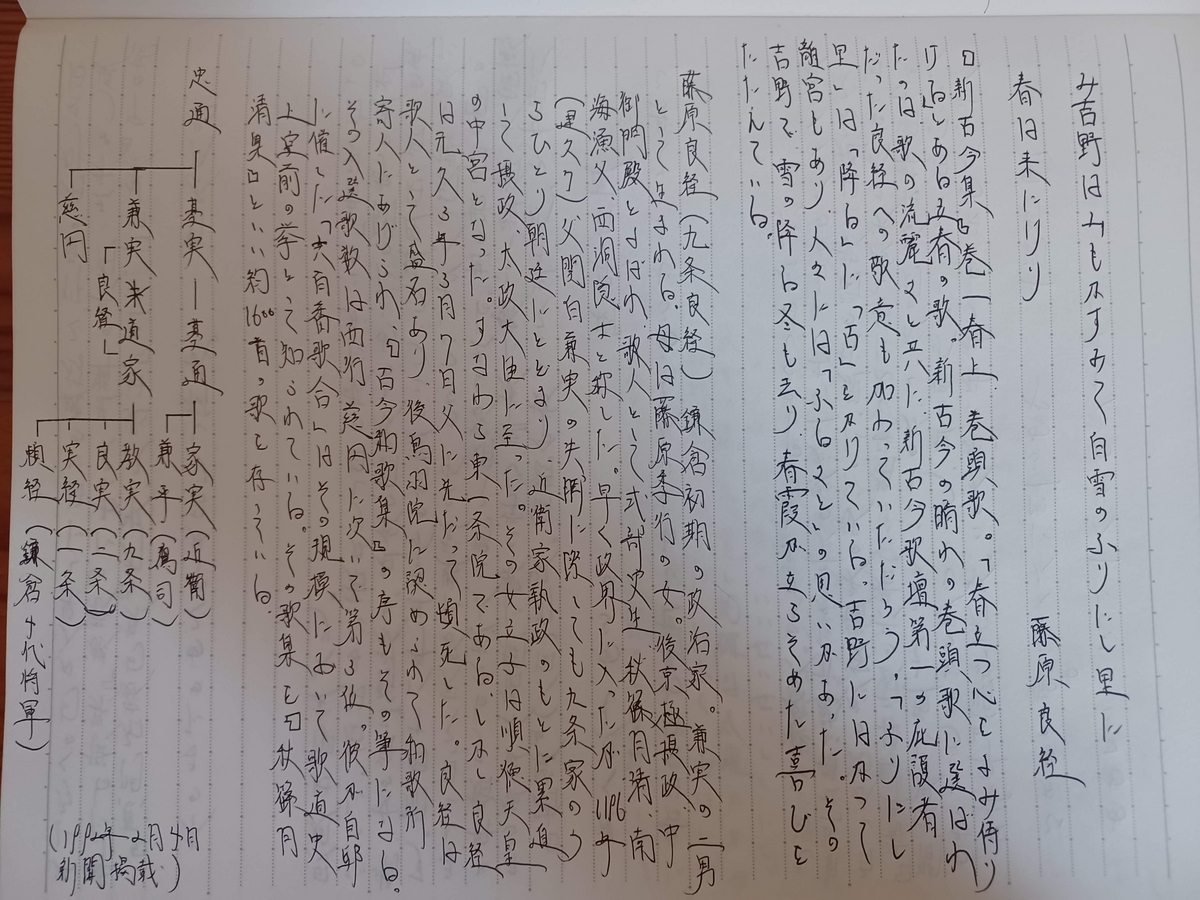 み吉野は山もかすみて白雪のふりにし里に
春は来にけり
藤原良経
『新古今集』巻一春上、巻頭歌。「春立つ心をよみ侍り
ける」とある立春の歌。新古今の晴れの巻頭歌に選ばれ
たのは歌の流麗さと共に、新古今歌壇第一の庇護者
だった良経への敬意も加わっていただろう。「ふりにし
里」は「降る」に「古」をかけている。吉野にはかつて
離宮もあり、人々には「ふるさと」の思いがあった。その
吉野で、雪の降る冬も去り、春霞が立ちそめた喜びを
たたえている。
藤原良経(九条良経)鎌倉初期の政治家。兼実の二男
として生まれる。母は藤原季行の女。後京極摂政、中
御門殿とよばれ、歌人として式部史生、秋篠月清、南
海漁父、西洞隠士と称した。早く政界に入ったが、1196年
(建久7)父関白兼実の失脚に際しても九条家のう
ちひとり朝廷にとどまり、近衛家執政のもとに累進
して摂政、太政大臣に至った。その女立子は順徳天皇
の中宮となった。すなわち東一条院である。しかし良経
は元久3年3月7日父に先だって頓死した。良経は
歌人として盛名あり、後鳥羽院に認められて和歌所
寄人にあげられ、『古今和歌集』の序もその筆になる。
その入選歌数は西行、慈円に次いで第3位。彼が自邸
に催した「六百番歌合」はその規模において歌道史
上空前の挙として知られている。その歌集を『秋篠月
清集』といい約1600首の歌を存している。
忠通
基実 基通
家実(近衛)
兼平(鷹司)
兼実 道家
「良経」
教実(九条)
良実(二条)
実経(一条)
頼経(鎌倉4代将軍)
慈円
(1992年2月4日
新聞掲載)